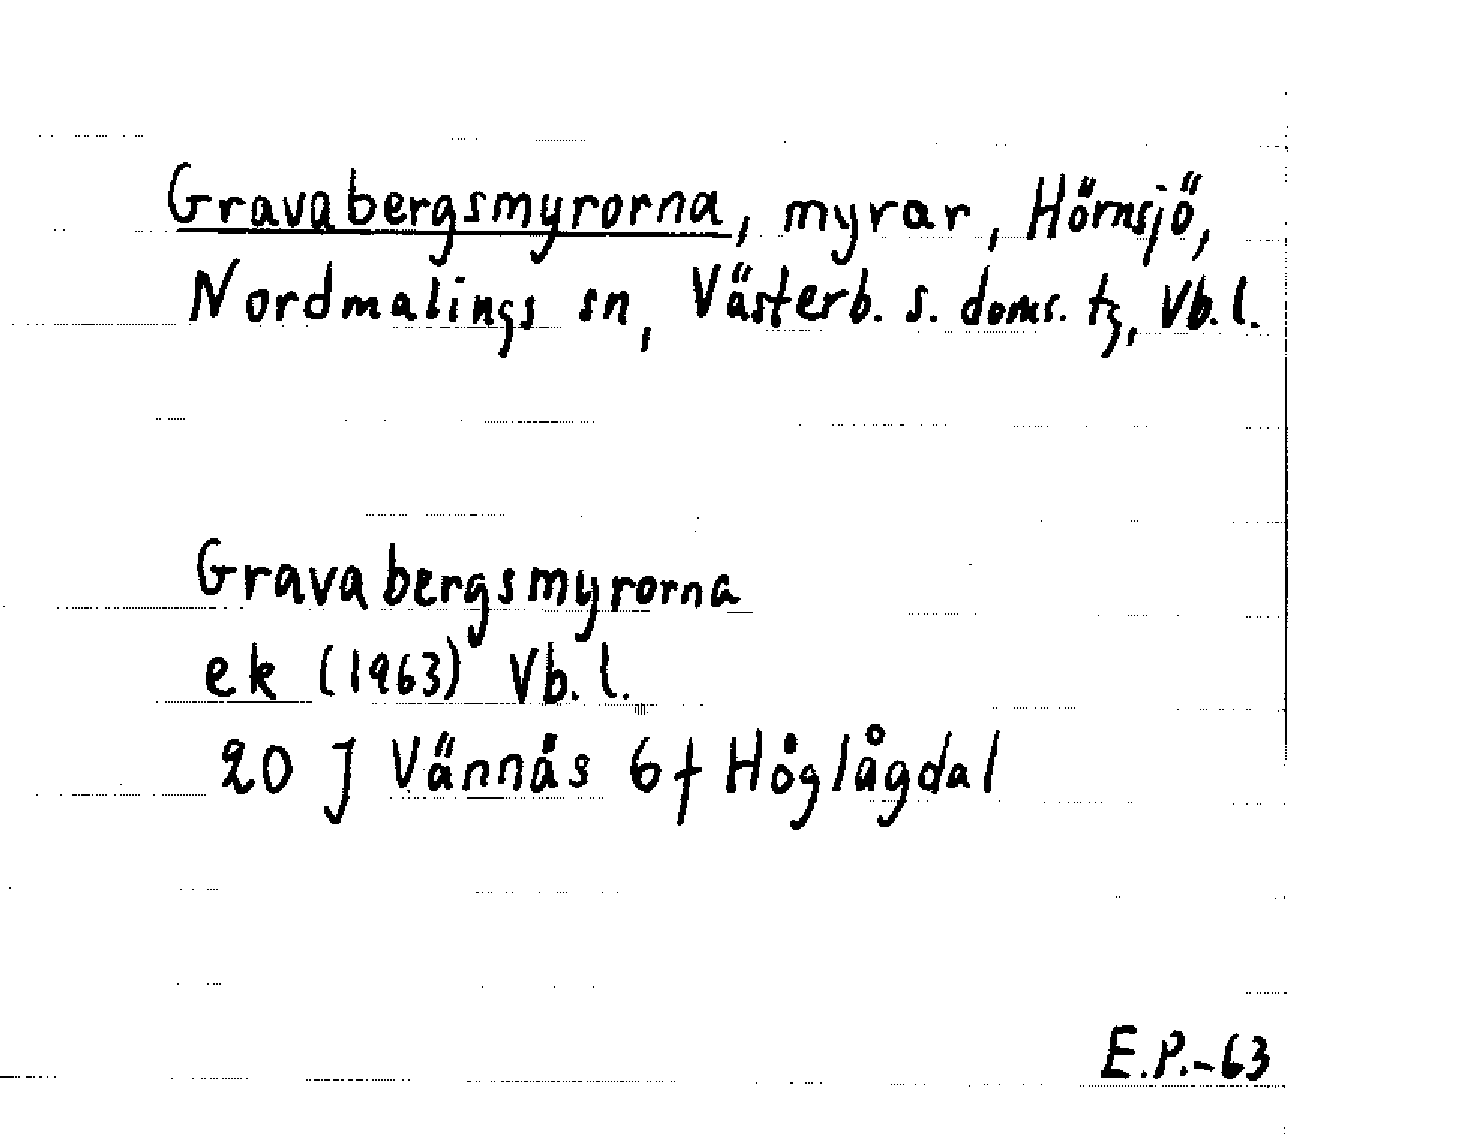 Gravabergsmyrorna, myrar, Hörnsjö,
Nordmalings sn, Västerb. s. doms. tg, Vb. l.
Gravabergsmyrorna
ek (1963) Vb. l.
20 J Vännäs 6f Höglågdal
E.P.-63